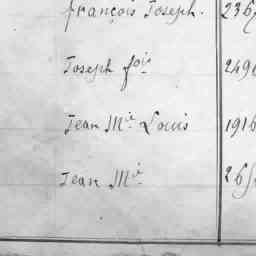 françois Joseph. 236
Joseph fois 249
Jean Mie Louis 1916
Jean Mie 26